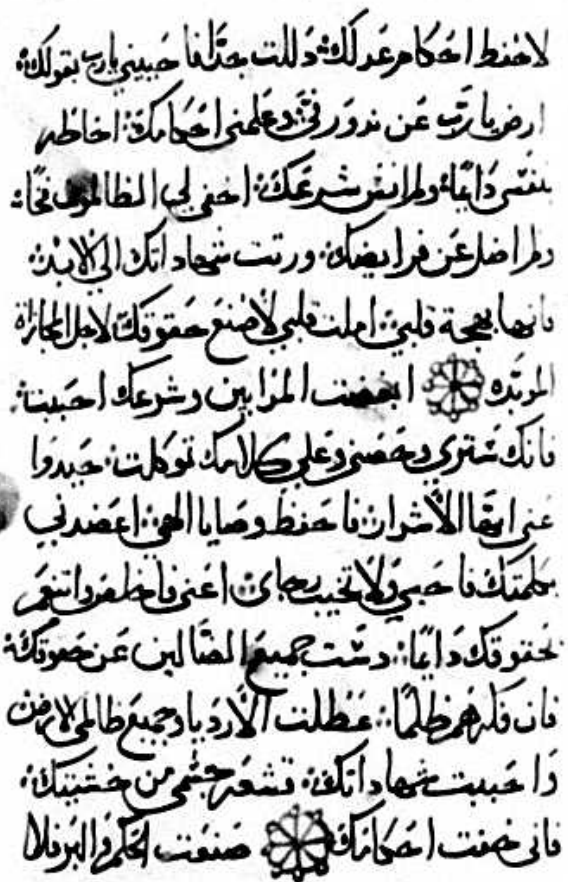 لاحفظ احكام عدلك: ذللت جدا فاحييني يارب بقولك:
ارض يا رب عن نذور فمي: وعلمني احكامك: اخاطر
بنفسي دايما: ولم انس شرعك: اخفى لي الظالمون فخا:
ولم اضل عن فرايضك: ورثت شهاداتك الى الابد:
فانها بهجة قلبي: املت قلبي لاصنع حقوقك لاجل المجازاة
المؤبده ابغضت المرايين وشرعك احببت:
فانك سترى وحصنى وعلى كلامك توكلت: حيدوا
عنى ايها الاشرار: فاحفظ وصايا الهى: اعضدني
بكلمتك فاحيي ولا تخيب رجاى: اعنى فاخلص واتنعم
بحقوقك دايما: دست جميع الضالين عن حقوقك:
فان فكرهم ظلما: عطلت الاردياء وجميع ظالمى الارض
واحببت شهاداتك: تشعر جسمى من خشيتك:
فانى خفت احكامك صنعت الحكم والبر فلا